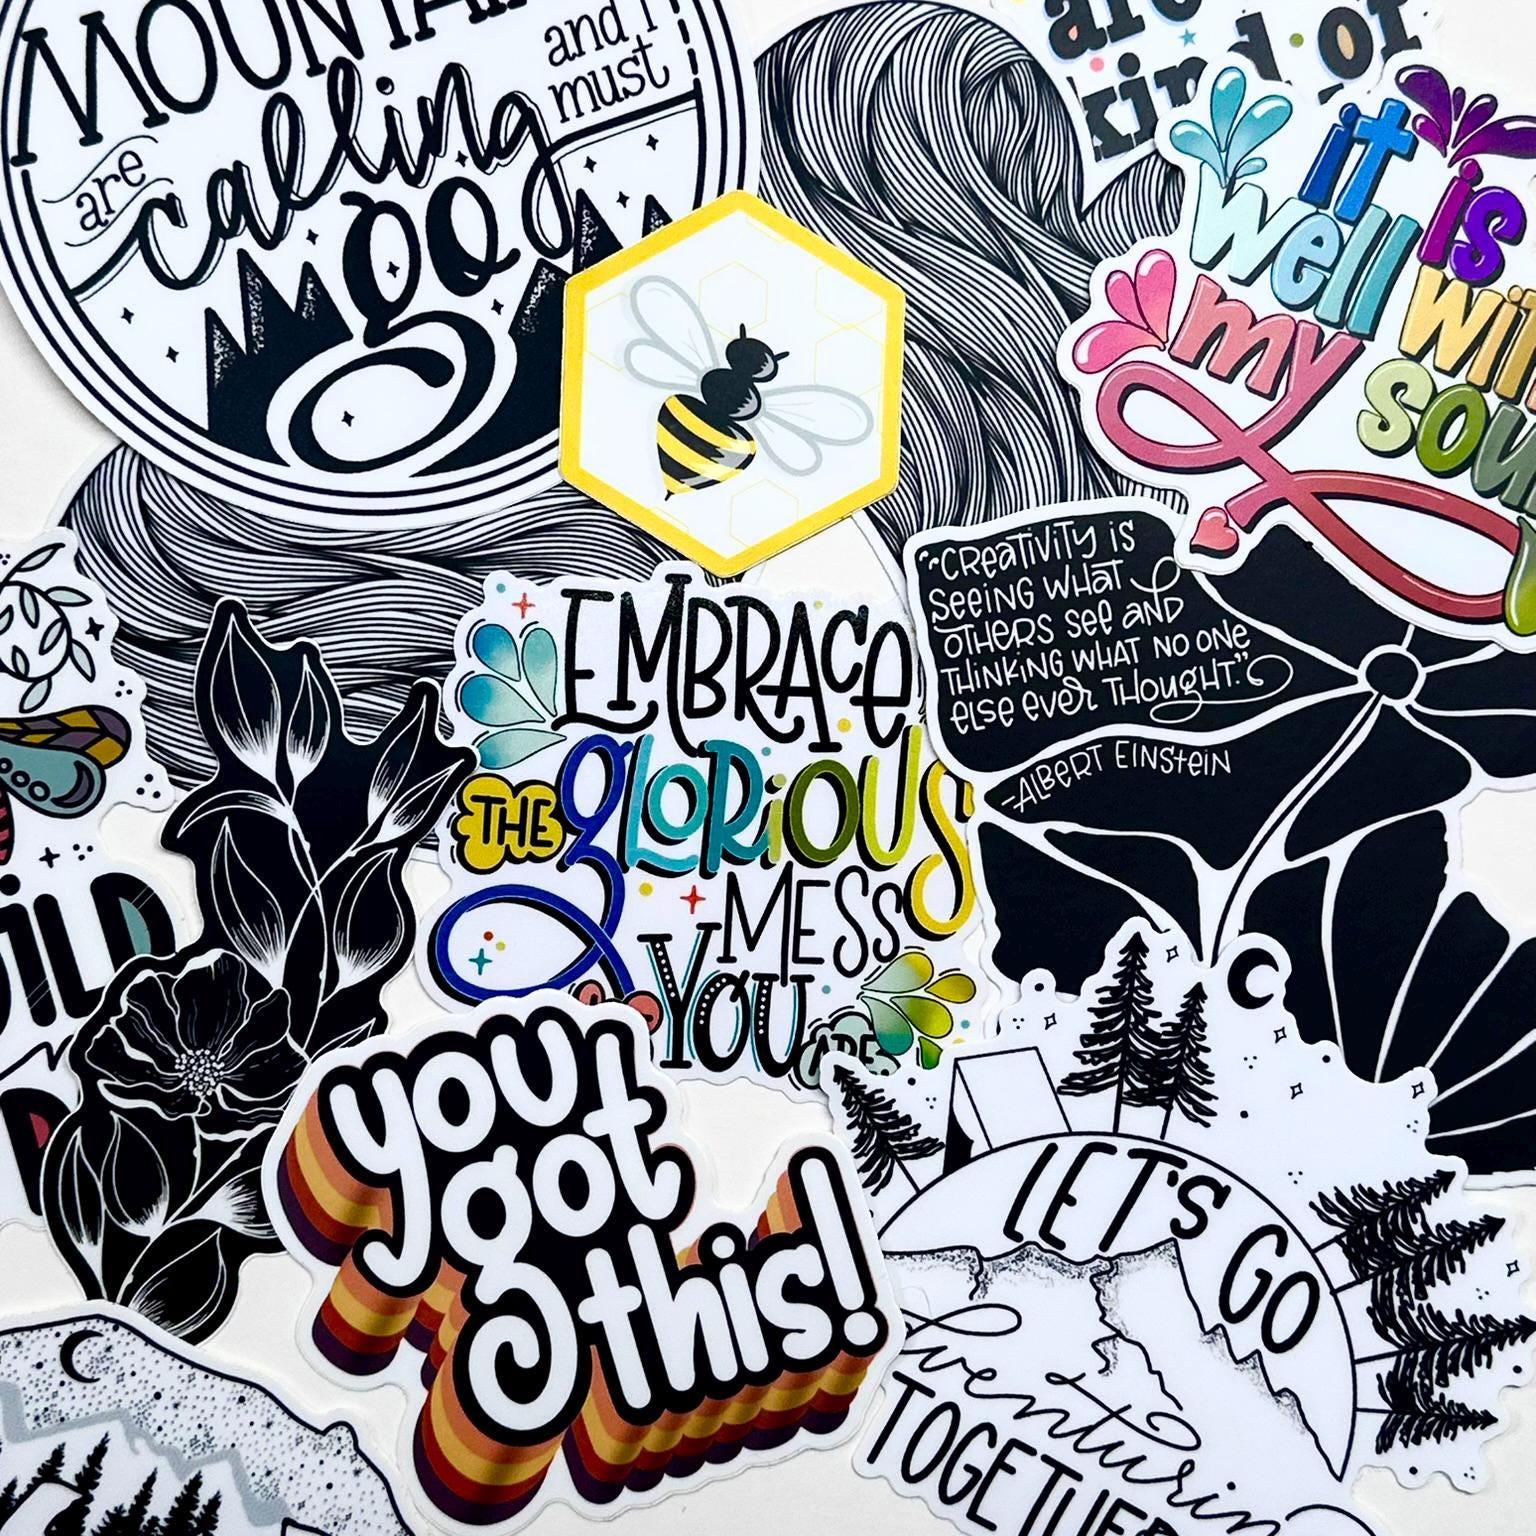 are
calling
and I
must
go
are
kind of
it is
well
my
soul
"CREATIVITY IS
SEEING WHAT
OTHERS SEE AND
THINKING WHAT NO ONE
ELSE EVER THOUGHT."
-ALBERT EINSTEIN
EMBRACE
THE GLORIOUS
MESS
YOU
ARE
you
got
this!
LET'S GO